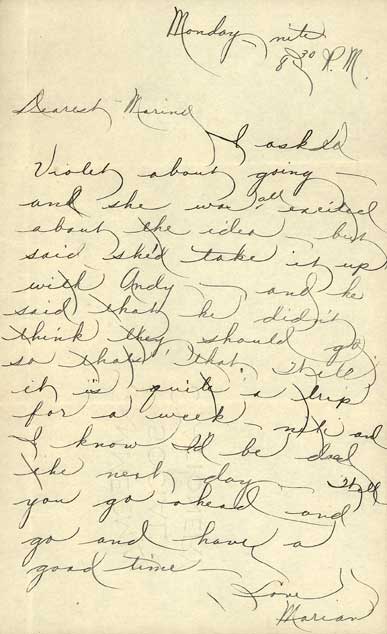 Monday nite
8:30 P.M.
Dearest Marine
I asked
Violet about going —
and she was all excited
about the idea — but
said she'd take it up
with Andy — and he
said that he didn't
think they should go
so that's that. Well
it is quite a trip
for a week — nite and
I know I'd be dead
the next day —
you go ahead and
go and have a
good time —
Love
Marian